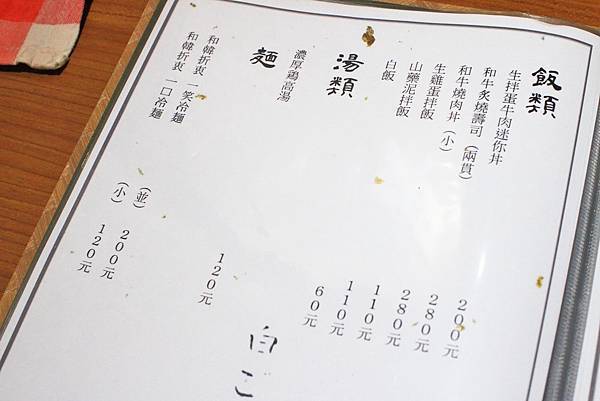 飯類
生拌蛋牛肉迷你丼 200元
和牛炙燒壽司（兩貫） 280元
和牛燒肉丼（小） 280元
生雞蛋拌飯 110元
山藥泥拌飯 110元
白飯 60元
湯類
濃厚鶏高湯 120元
麵
和韓折衷 一笑冷麵 （並） 200元
和韓折衷 一口冷麵 （小） 120元
自